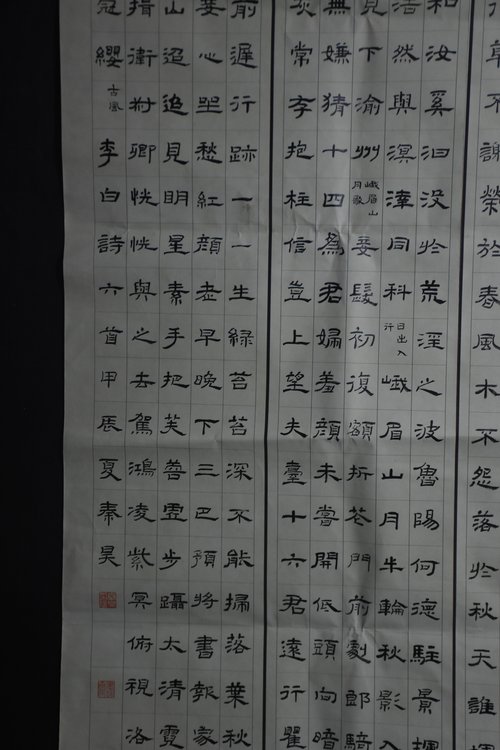 草不謝榮於春風木不怨落於秋天誰
和汝奚汩没於荒淫之波魯陽何德駐景揮
浩然與溟涬同科日出入行峨眉山月半輪秋影入
見下渝州峨眉山月歌妾髮初復額折花門前劇郎騎
無嫌猜十四為君婦羞顏未嘗開低頭向暗
灰常存抱柱信豈上望夫臺十六君遠行瞿
前遲行跡一一生緑苔苔深不能掃落葉秋
妾心坐愁紅顏老早晚下三巴預將書報家
山迢迢見明星素手把芙蓉虛步躡太清霓
揖衛叔卿恍恍與之去駕鴻凌紫冥俯視洛
冠纓古風李白詩六首甲辰夏秦昊